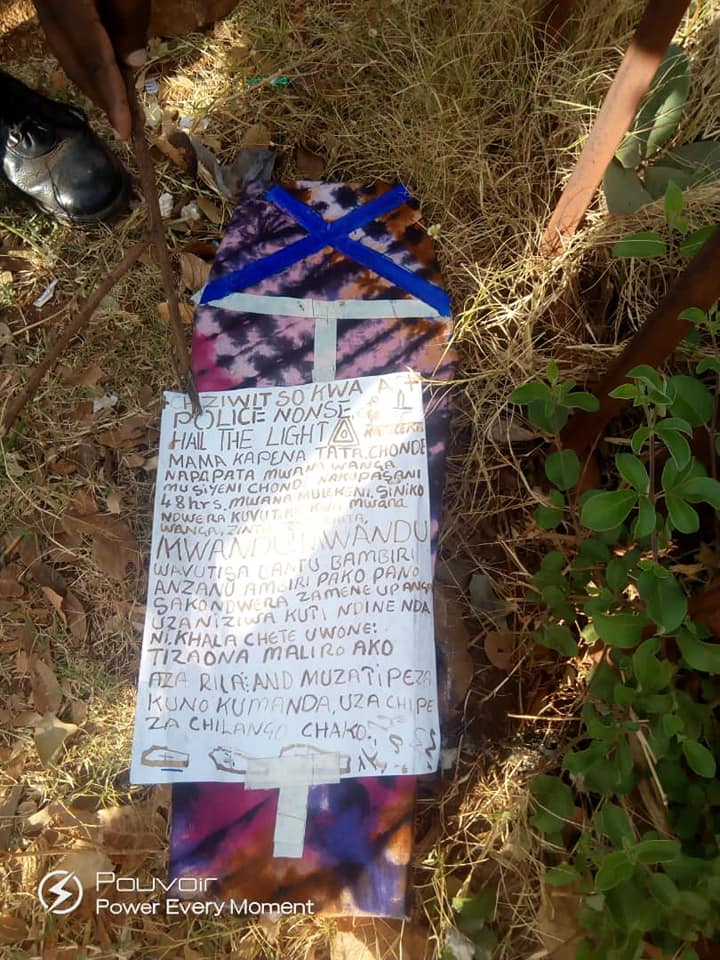 CHIZIWITSO KWA A
POLICE NONSE
HAIL THE LIGHT
MAMA KAPENA TATA, CHONDE
NAPAPATA MWANI WANGA
MUSIYENI CHONDE NAKUPASANI
48hrs, MWANA MULEKENI, SINIKO
NDWERA KUVUTIKA KWA MWANA
WANGA,
MWANDU MWANDU
WAVUTISA BANTU BAMBIRI
ANZANU AMBIRI PAKO PANO
SAKONDWERA ZAMENE UPANGA
UZANIZIWA KUTI NDINE NDA
NI. KHALA CHETE UWONE:
TIZAONA MALIRO AKO
AZA RILA: AND MUZATIPEZA
KUNO KUMANDA, UZA CHIPE
ZA CHILANGO CHAKO.
Pouvoir
Power Every Moment